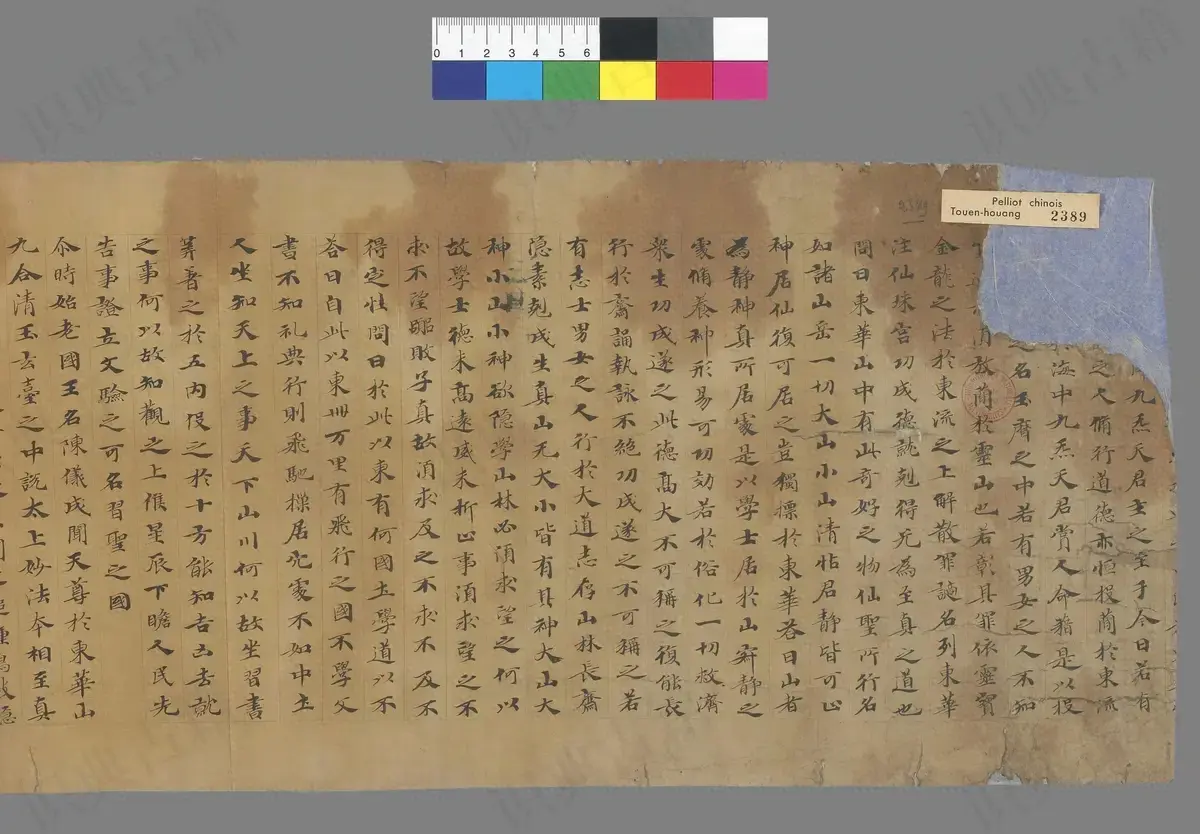 九炁天君主之至于今日若有
之人脩行道德亦恒投蕳於東流
海中九炁天君賞人命籍是以投
之名玉齊之中若有男女之人不知
放蕳於靈山也若彰其罪依靈寶
金龍之法於東流之上解散罪謫名列東華
注仙珠宮功成德就剋得无為至真之道也
問曰東華山中有此奇好之物仙聖所行名
如諸山岳一切大山小山清恬君靜皆可止
神居仙復可居之豈獨摽於東華荅曰山者
為靜神真所居處是以學士居於山穽靜之
處脩養神形易可功若於俗化一切救濟
衆生功成遂之此德髙大不可稱之復能長
行於齋誦執詠不絕功成遂之不可稱之若
有志士男女之人行於大道志存山林長齋
隱素剋成生真山无大小皆有其神大山大
神小山小神欲隱學山林必湏求望之何以
故學士德未髙遠威未折止事湏求望之不
求不望蹋敗子真故湏求及之不求不及不
得定性問曰於此以東有何國土學道以不
荅曰自此以東卌万里有飛行之國不學父
書不知礼典行則飛馳摽居穴處不如中土
人坐知天上之事天下山川何以故坐習書
筭著之於五內伇之於十方能知吉凶去就
之事何以故知觀之上條星辰下瞻人民先
告事證立文驗之可名習聖之國
尒時始老國王名陳儀成聞天尊於東華山
九合清玉玄臺之中說太上妙法本相至真